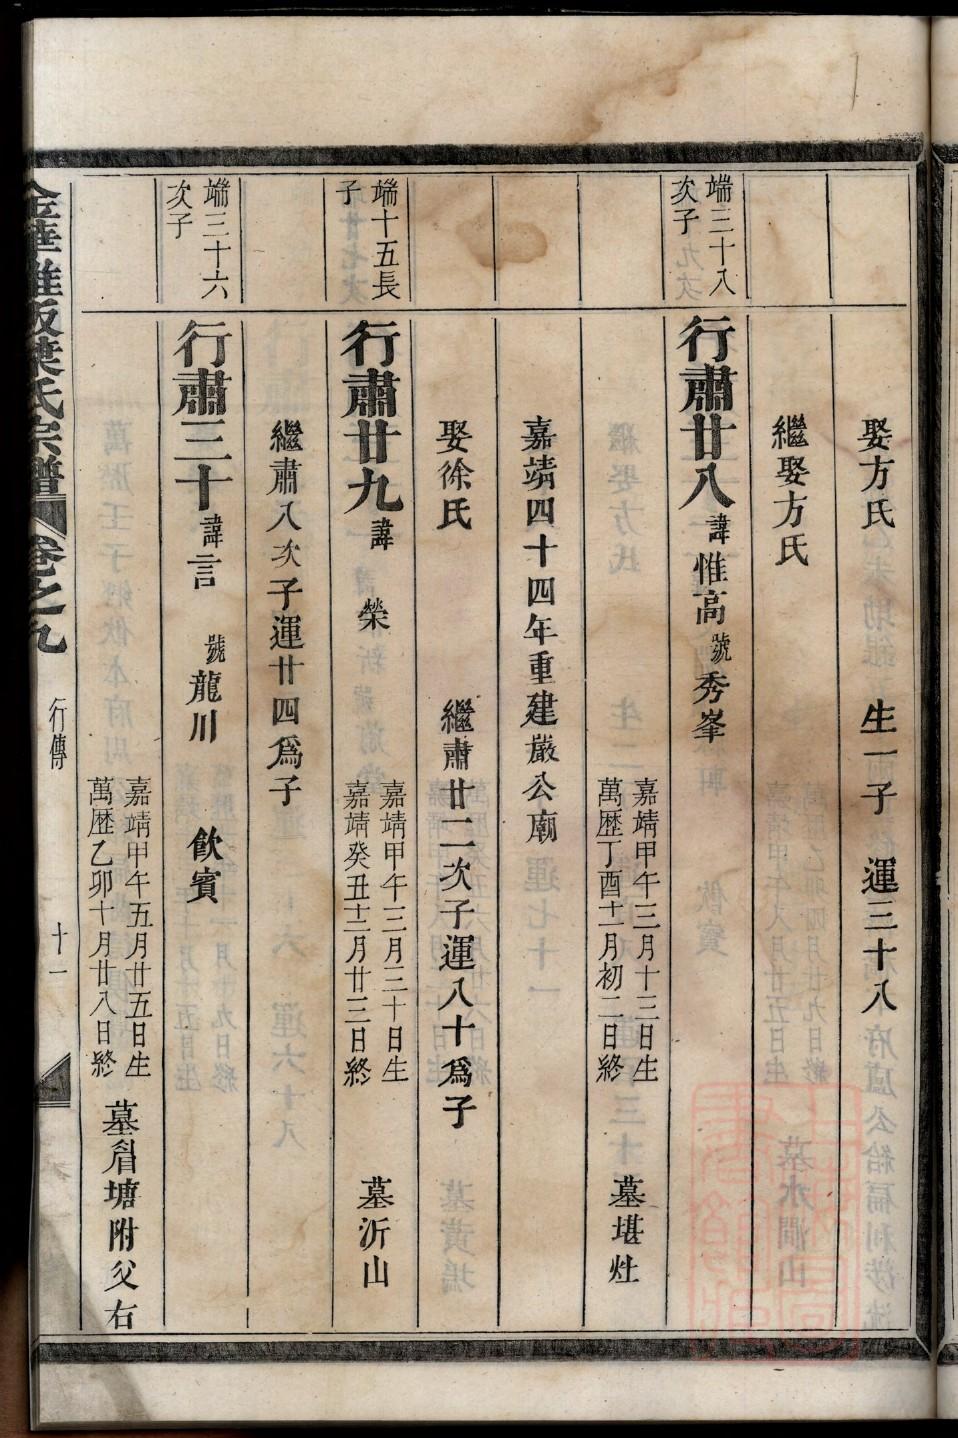 娶方氏 生一子 運三十八
繼娶方氏
端三十八
次子
行肅廿八 諱惟高 號秀峯
嘉靖甲午三月十三日生
萬歷丁酉十一月初二日終
墓堪灶
嘉靖四十四年重建嚴公廟
娶徐氏 繼肅廿二次子運八十爲子
端十五長
子
行肅廿九 諱榮
嘉靖甲午三月三十日生
嘉靖癸丑十二月廿三日終
墓沂山
繼肅八次子運廿四爲子
端三十六
次子
行肅三十 諱言 號龍川 飲賓
嘉靖甲午五月廿五日生
萬歷乙卯十月廿八日終
墓眉塘附父右
金華雅坂葉氏宗譜 卷之九 行傳 十一